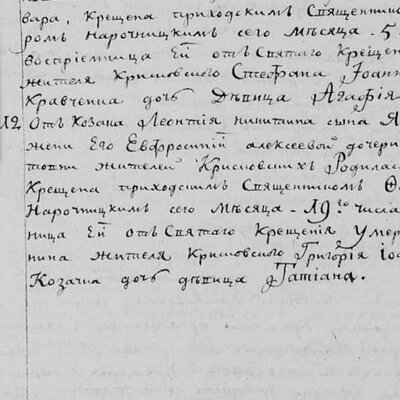 вара, Крещена приходскимъ Священнико
ромъ Нарочницкимъ сего Мѣсяца - 5
воспріемница Ей отъ Святаго Крещен
жителя Крисковского Стефана Іоанн
Кравченка дочь Дѣвица Агафія
12 Отъ Козака Леонтія никитина сына Я
жени Его Евфросиніи алексеевой дочери
жителей Крисковскихъ Родилас
Крещена приходскимъ Священикомъ Ѳ
Нарочницкимъ сего Мѣсяца - 19го числа
ница Ей отъ Святаго Крещенія Умер
нина жителя Крисковского Григорія Іо
Козачка дочь дѣвица Татіана.